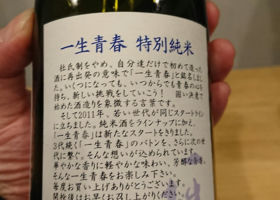 一生青春 特別純米
杜氏制をやめ、自分達だけで初めて造った
酒に再出発の意味で「一生青春」と銘名しまし
た。いくつになっても、いつからでも青春の心を
持ち、新しい挑戦をしていこう! 固い決意で
始めた酒造りを象徴する言葉です。
そして2011年、若い世代が同じスタートライン
に立ちました。純米酒をラインナップに加え、
「一生青春」は新たなスタートをきりました。
3代続く「一生青春」のバトンを、さらに次の世
代に繋ぐ。そんな想いが込められています。
華やかな香りに軽やかな味わい、芳醇な
そんな一生青春をお楽しみ下さい。
毎度お買い上げありがとうございます。
開栓後はお早くお召し上がりください。